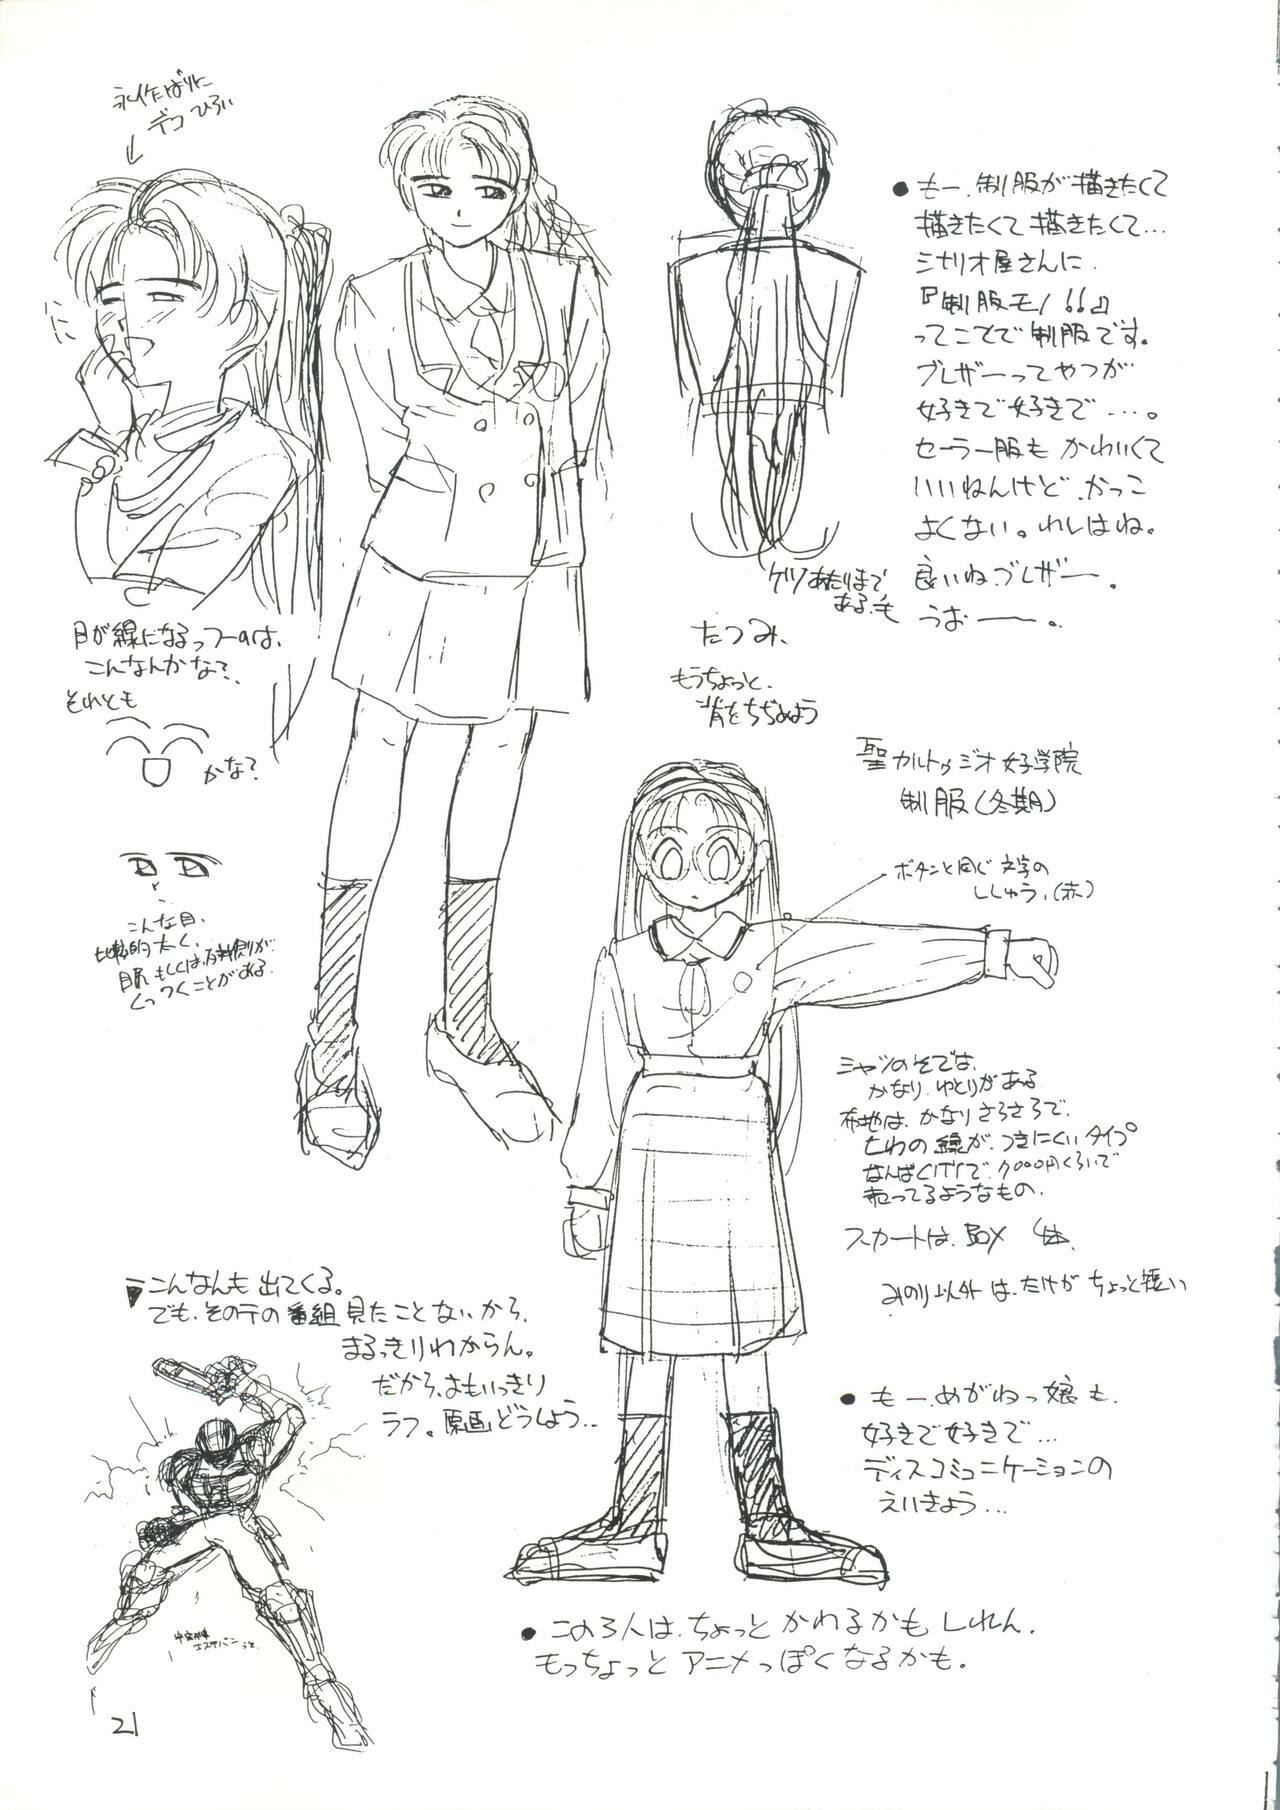 永作ばりに
デコ ひろい
●もー、制服が描きたくて
描きたくて描きたくて…
シナリオ屋さんに、
『制服モノ!!』
ってことで制服です。
ブレザーってやつが
好きで好きで…。
セーラー服も かわいくて
いいねんけど、かっこ
よくない。わしはね。
良いねブレザー。
うおーー。
ケツあたりまで
ある、毛
たつみ、
もうちょっと、
背をちぢめよう
目が線になるっつーのは、
こんなんかな?
それとも
かな?
こんな目、
比較的太く、
くっつくことがある
聖カルトゥジオ女子学院
制服(冬期)
ボタンと同じ文字の
ししゅう、(赤)
シャツのそでは、
かなり、ゆとりがある
布地は、かなりさらさらで、
しわの線が、つきにくいタイプ
なんばCITYで、7000円くらいで
売ってるようなもの、
スカートは、BOX
みのり以外は、たけがちょっと短い
こんなんも出てくる。
でも、その手の番組見たことないから、
まるっきりわからん。
だから、おもいっきり
ラフ。原画どうしよう…
宇宙刑事
エステバン
●もーめがねっ娘も、
好きで好きで…
ディスコミュニケーションの
えいきょう…
●この3人は、ちょっとかわるかもしれん。
もっちょっとアニメっぽくなるかも。
21